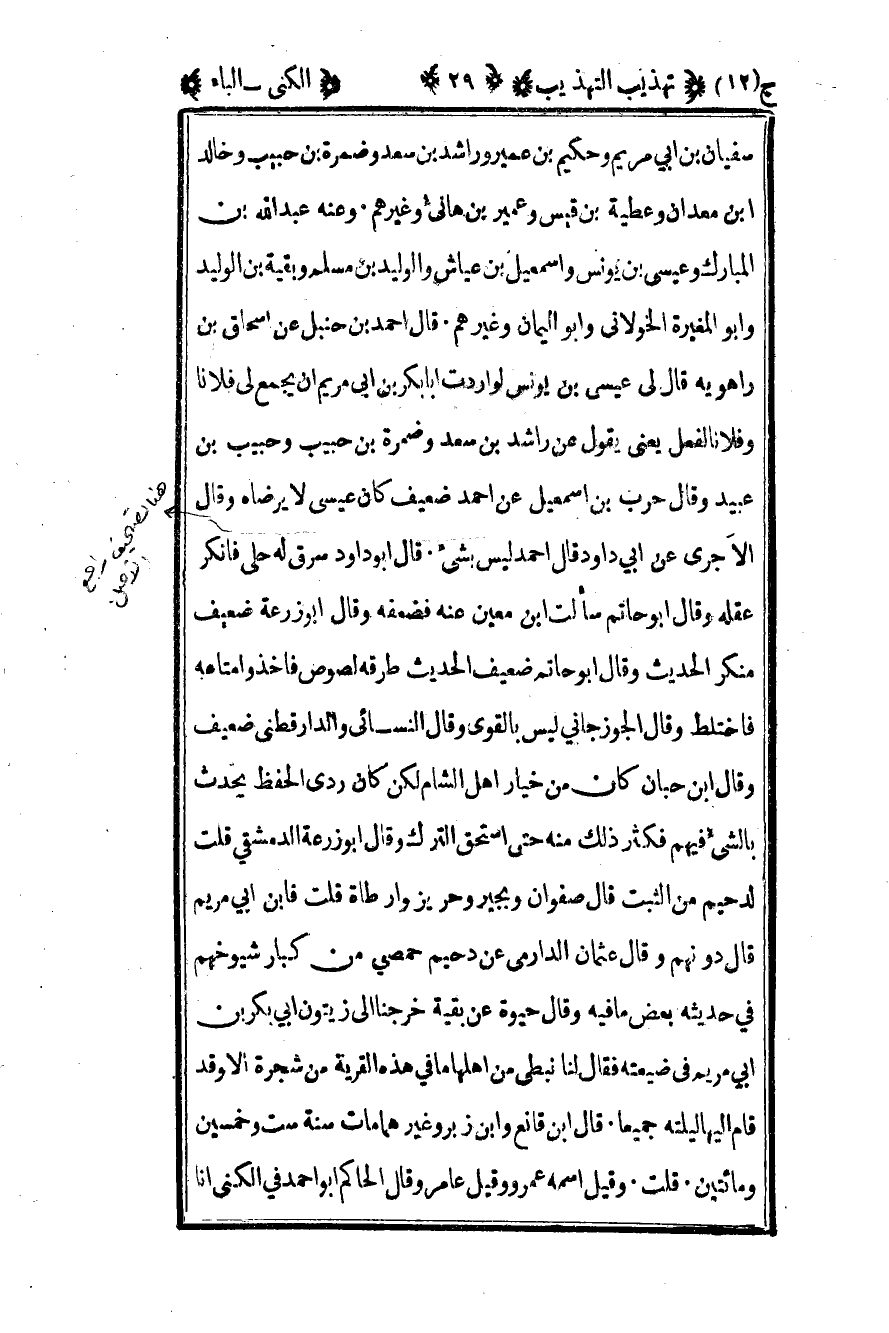 ج (١٢) ﴿ تهذيب التهذيب ﴾ ﴿ ٢٩ ﴾ ﴿ الكنى ــ الباء ﴾
سفيان بن ابي مريم وحكيم بن عمير وراشد بن سعد وضمرة بن حبيب وخالد
ابن معدان وعطية بن قيس وعمير بن هانئ وغيرهم ٠ وعنه عبدالله بن
المبارك وعيسى بن يونس واسمعيل بن عياش والوليد بن مسلم وبقية بن الوليد
وابو المغيرة الخولانى وابو اليمان وغيرهم ٠ قال احمد بن حنبل عن اسحاق بن
راهويه قال لى عيسى بن يونس لو اردت ابا بكر بن ابى مريم ان يجمع لى فلانا
وفلانا لفعل يعنى يقول عن راشد بن سعد وضمرة بن حبيب وحبيب بن
عبيد وقال حرب بن اسمعيل عن احمد ضعيف كان عيسى لا يرضاه وقال
الآجرى عن ابي داود قال احمد ليس بشئ ٠ قال ابو داود سرق له حلى فانكر
عقله وقال ابو حاتم سألت ابن معين عنه فضعفه وقال ابو زرعة ضعيف
منكر الحديث وقال ابو حاتم ضعيف الحديث طرقه لصوص فاخذوا متاعه
فاختلط وقال الجوزجاني ليس بالقوى وقال النســائى والدارقطنى ضعيف
وقال ابن حبان كان من خيار اهل الشام لكن كان ردى الحفظ يحدث
بالشئ فيهم فكثر ذلك منه حتى استحق الترك وقال ابو زرعة الدمشقي قلت
لدحيم من الثبت قال صفوان وبجير وحريز وارطاة قلت فابن ابي مريم
قال دونهم وقال عثمان الدارمى عن دحيم حمصي من كبار شيوخهم
في حديثه بعض مافيه وقال حيوة عن بقية خرجنا الى زيتون ابي بكر بن
ابي مريم فى ضيعته فقال لنا نبطى من اهلها مافي هذه القرية من شجرة الا وقد
قام اليها ليلته جميعا ٠ قال ابن قانع وابن زبر وغيرهما مات سنة ست وخمسين
ومائتين ٠ قلت ٠ وقيل اسمه عمرو وقيل عامر وقال الحاكم ابو احمد في الكنى انا
هنا تصحيف راجع
الاصل